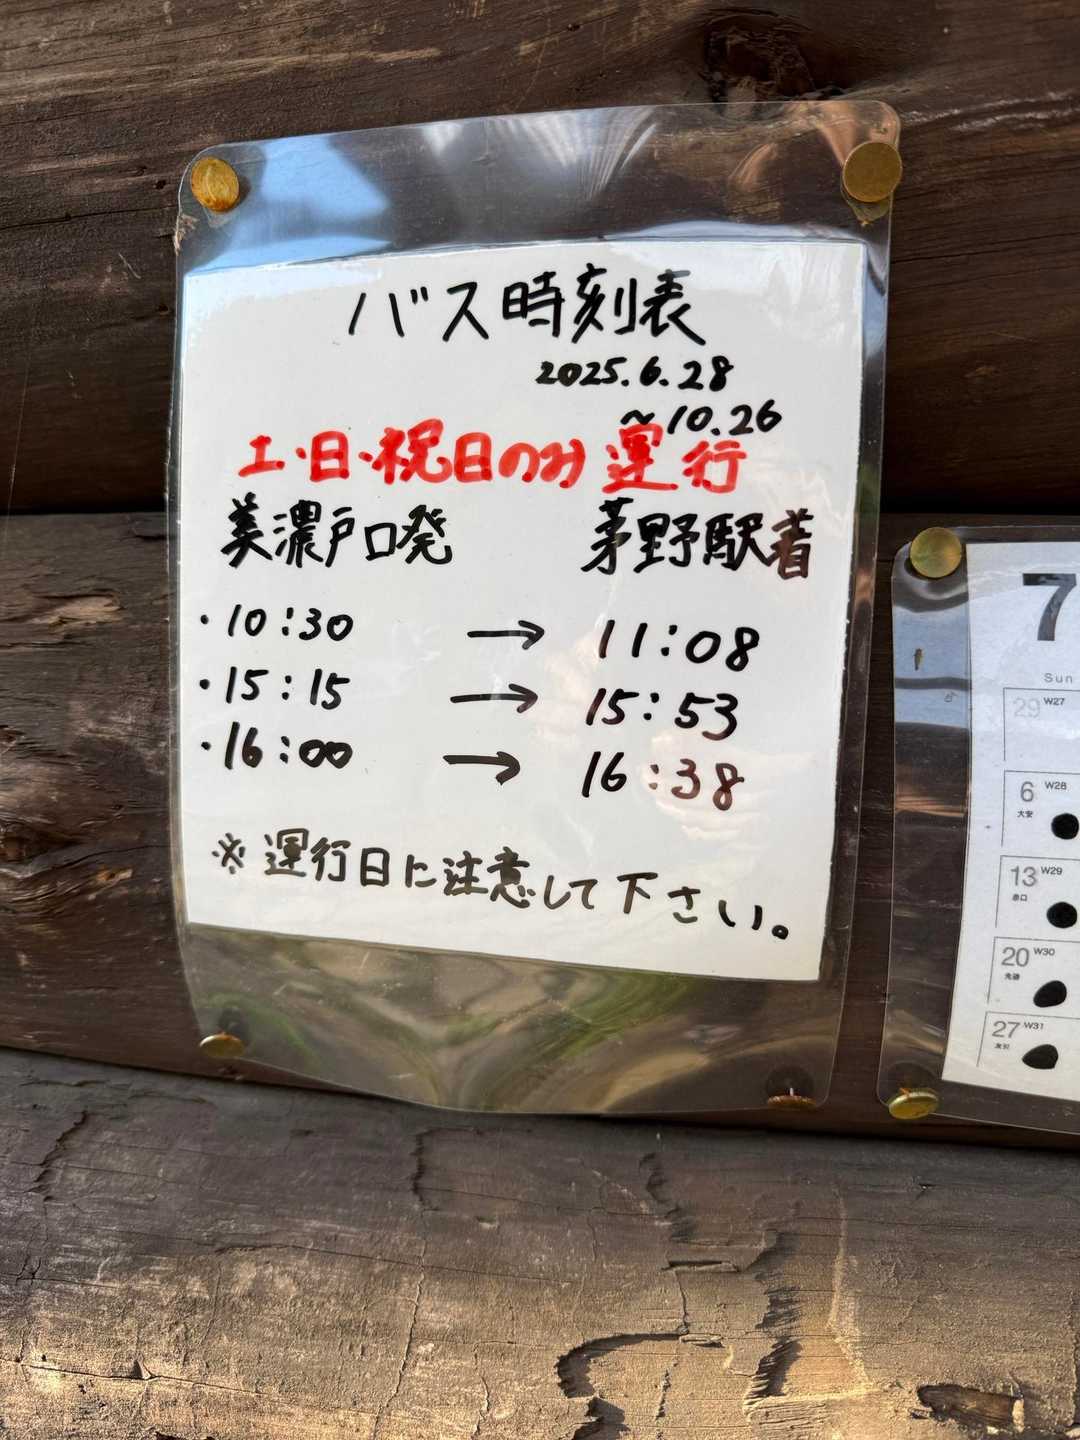 バス時刻表
2025.6.28
~10.26
土・日・祝日のみ運行
美濃戸口発 茅野駅着
・10:30 → 11:08
・15:15 → 15:53
・16:00 → 16:38
※運行日に注意して下さい。
7
Sun
29 W27
6 W28
大安
13 W29
赤口
20 W30
先勝
27 W31
友引